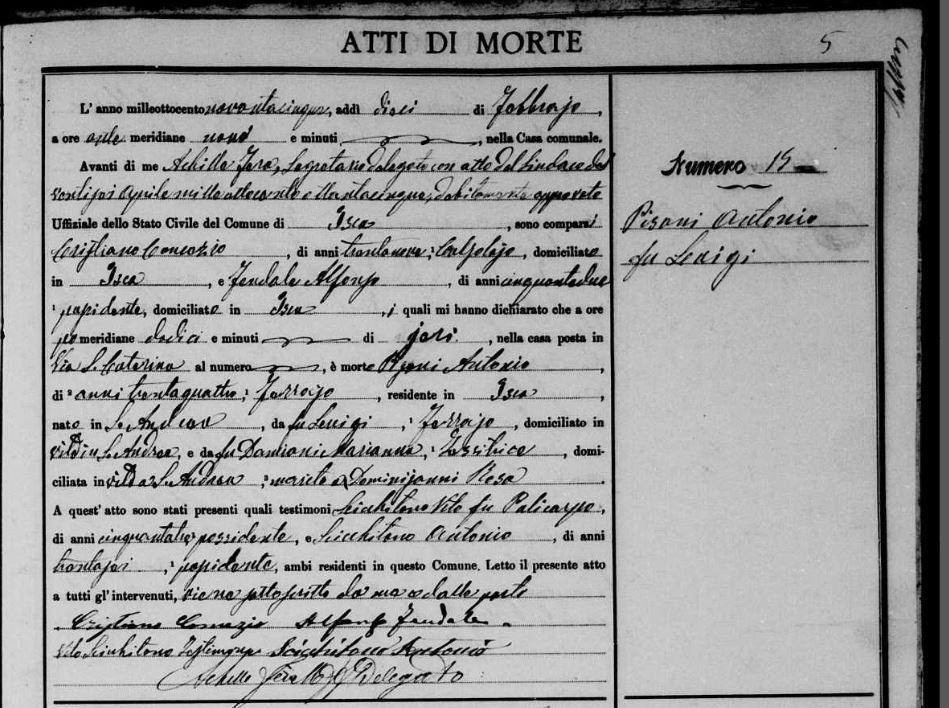 ATTI DI MORTE
5
L' anno milleottocento novantacinque, addì dieci di Febbrajo,
a ore ante meridiane nove e minuti , nella Casa comunale.
Avanti di me Achille Segretario delegato con atto del Sindaco del
ventisei Aprile mille ottocento ottantacinque, debitamente approvato
Uffiziale dello Stato Civile del Comune di Isca, sono comparsi
Cristiano Comezio, di anni trentanove, Calzolajo, domiciliato
in Isca, e Alfonso, di anni cinquantadue
possidente, domiciliato in Isca, i quali mi hanno dichiarato che a ore
po meridiane dodici e minuti di jeri, nella casa posta in
Via S. Caterina al numero , è morto Pisani Antonio
di anni trentaquattro, Ferrajo, residente in Isca,
nato in S. Andrea, da fu Luigi, Ferrajo, domiciliato in
vita in S. Andrea, e da fu Damiani Marianna, Tessitrice, domi-
ciliata in vita a S. Andrea, marito a Dominijanni Rosa.
A quest' atto sono stati presenti quali testimoni Scichitano Vito fu Policarpo,
di anni possidente, e Scichitano Antonio, di anni
trentasei, possidente, ambi residenti in questo Comune. Letto il presente atto
a tutti gl' intervenuti, viene sottoscritto da me e dalle parti
Cristiano Comezio Alfonso
Vito Scichitano Testimone Scichitano Antonio
Achille Delegato
Numero 15
Pisani Antonio
fu Luigi